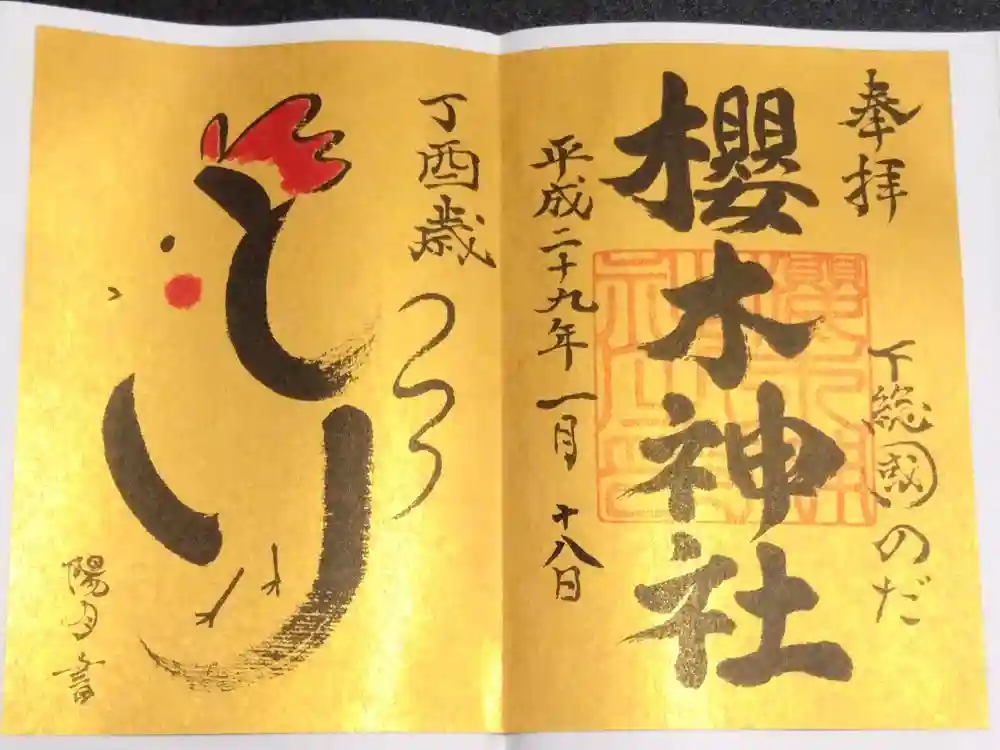 奉拝
下総國のだ
櫻木神社
平成二十九年一月十八日
丁酉歳
とり
陽月書